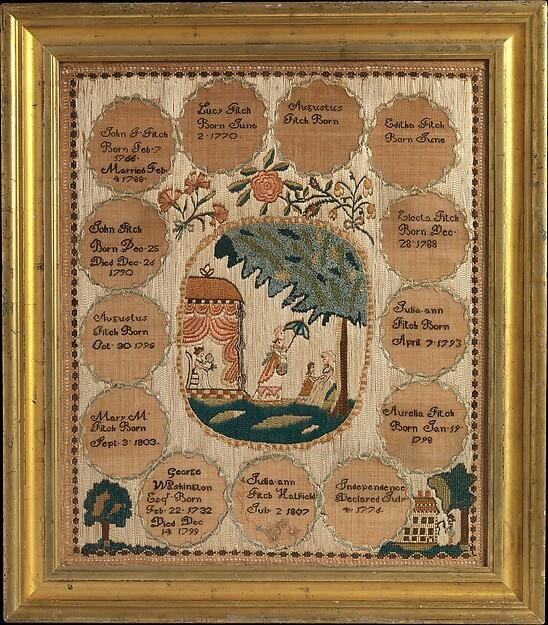 John F. Fitch
Born Feb. 7
1766.
Married Feb.
4 1788
Lucy Fitch
Born June
2. 1770.
Augustus
Fitch Born
Editha Fitch
Born June
John Fitch
Born Dec. 25
Died Dec. 26
1790
Electa Fitch
Born Dec.
28 1788
Augustus
Fitch Born
Oct. 30 1796
Julia-ann
Fitch Born
April 7 1793
Mary M
Fitch Born
Sept. 3. 1803.
Aurelia Fitch
Born Jan. 19
1798
George
Washington
Esqr. Born
Feb. 22. 1732
Died Dec
14 1799
Julia-ann
Fitch Hatfield
July 2 1807
Independence
Declared July
4. 1776.